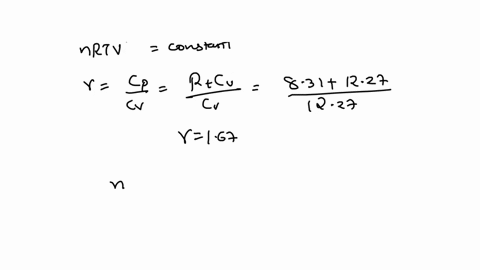 nRTV = constant
γ = Cp/Cv = R+Cv/Cv = 8.31+12.27/12.27
γ=1.67
n